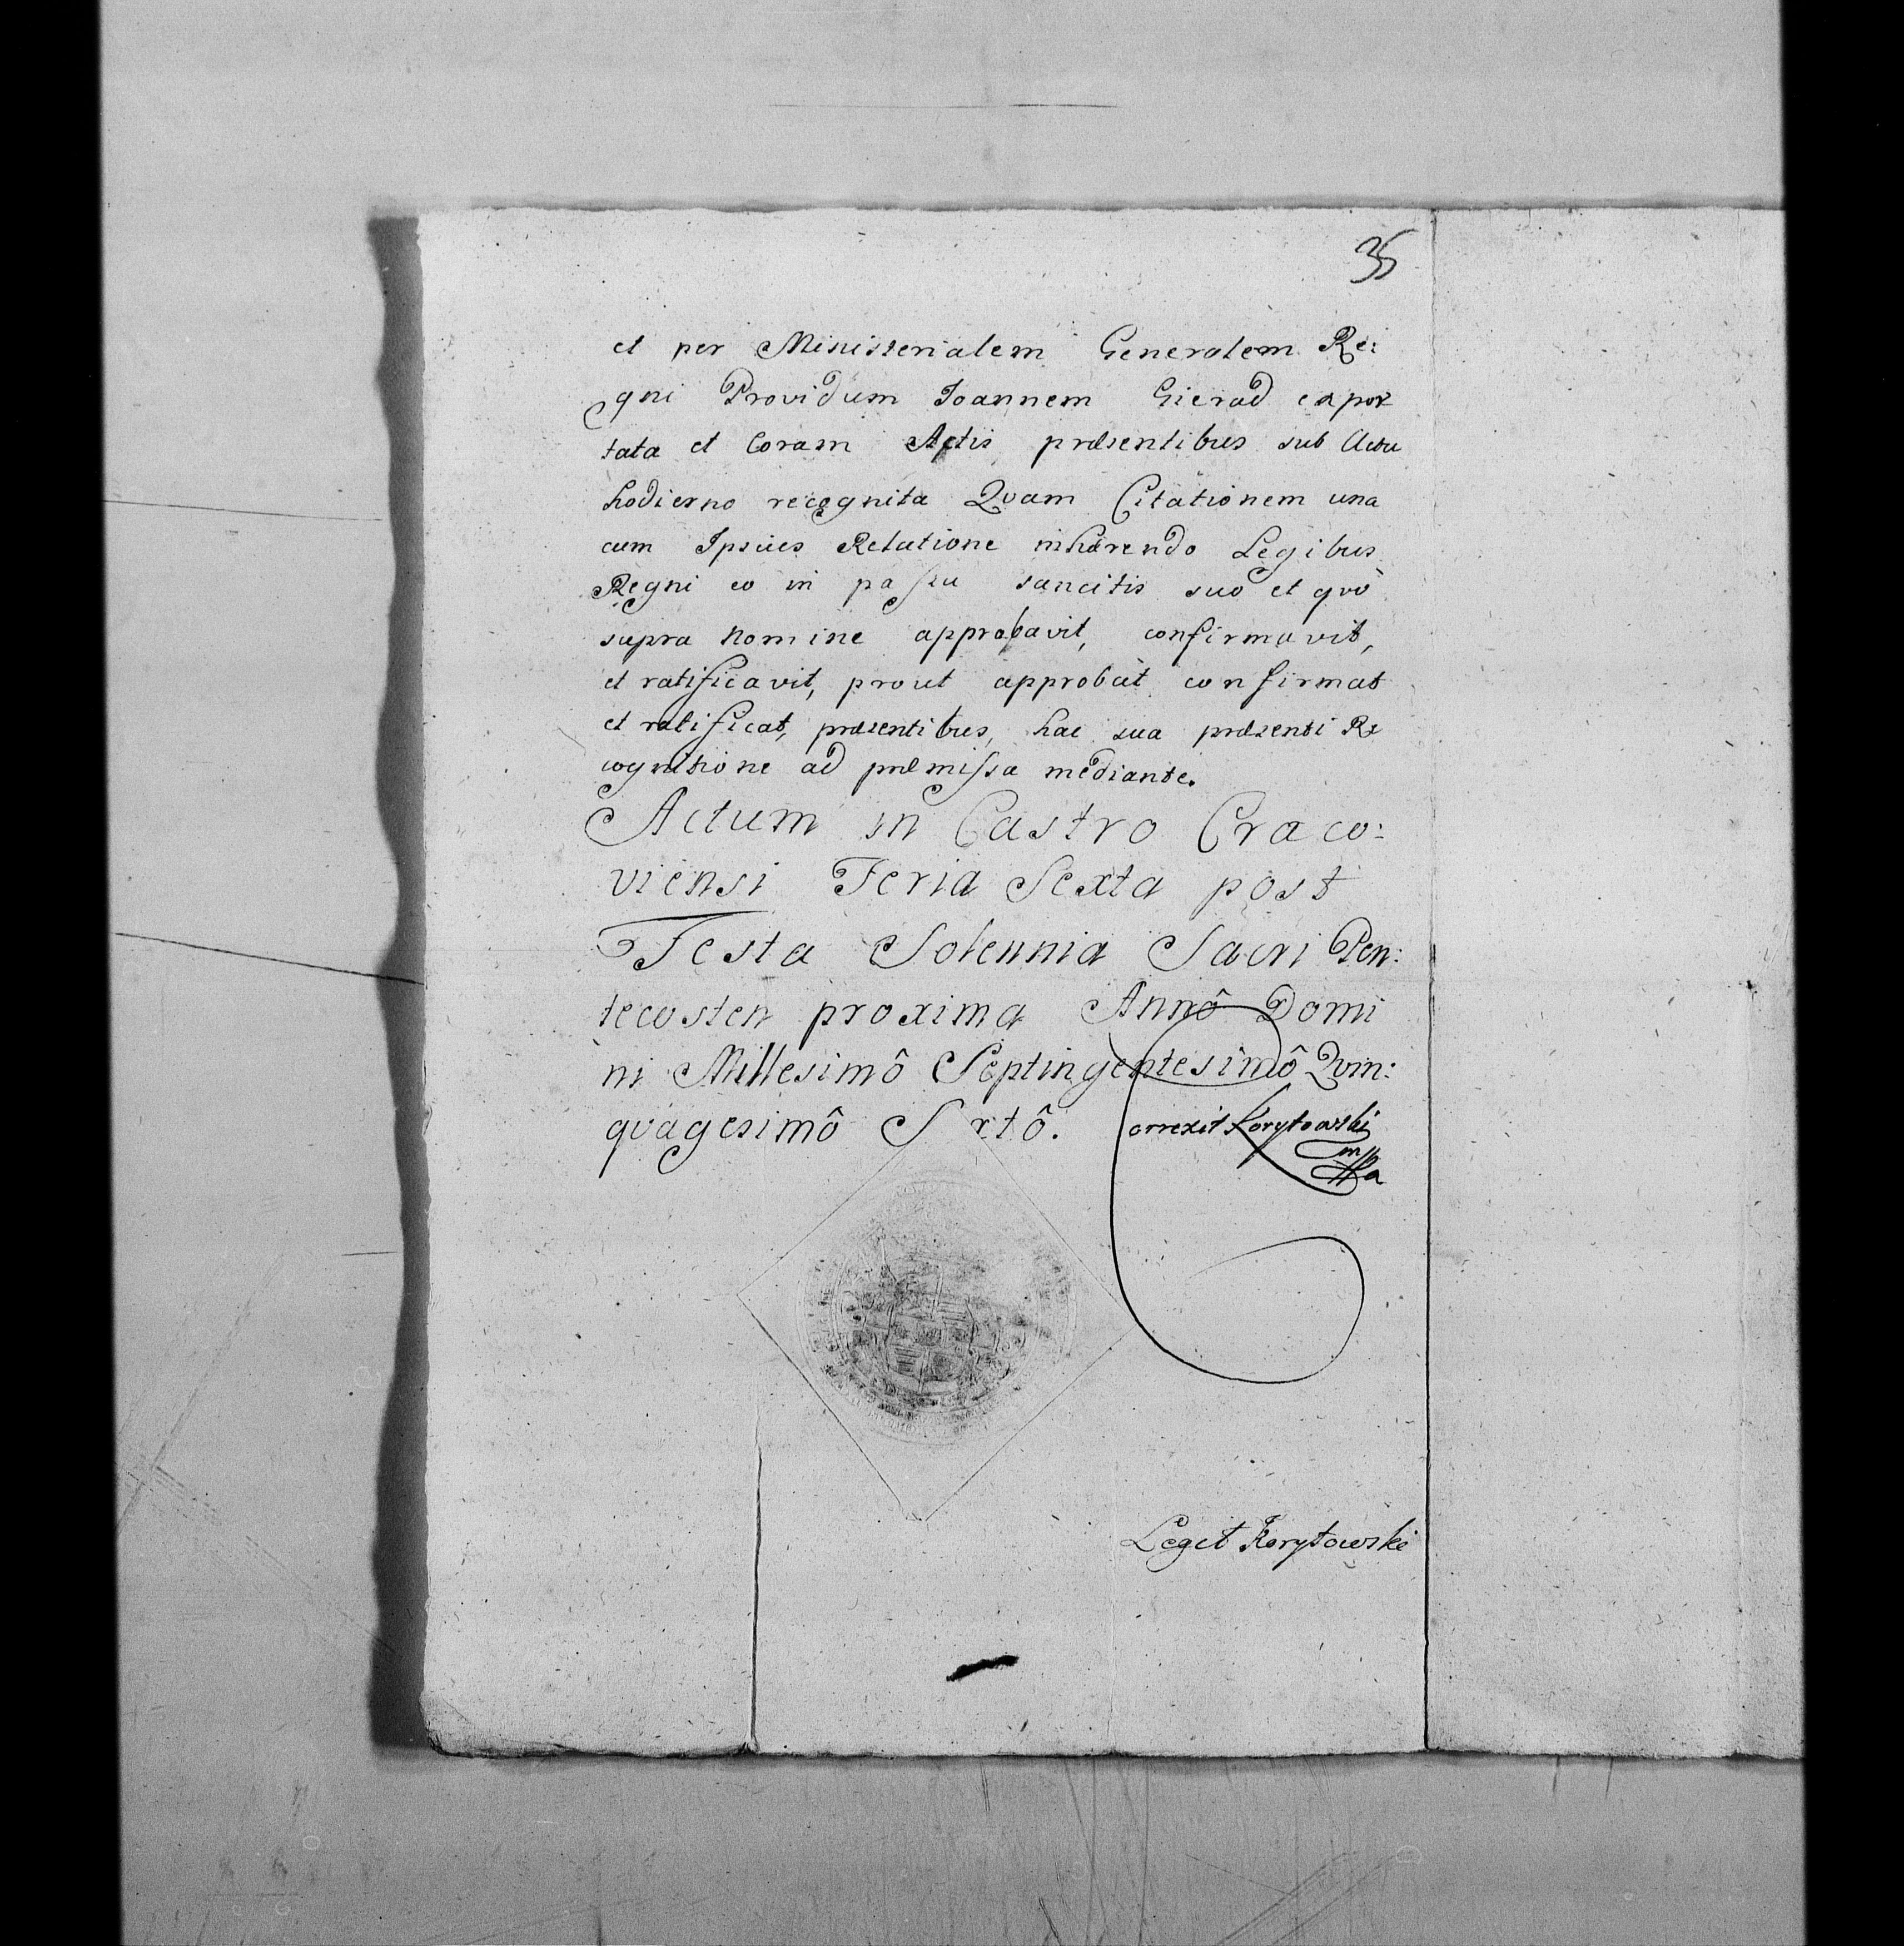 35
et per Ministerialem Generalem Re:
gni Providum Joannem Gierad expor
tata et Coram Actis præsentibus sub Actu
hodierno recognita Quam Citationem una
cum Ipsius Relatione inhærendo Legibus
Regni eo in passu sancitis suo et quô
supra nomine approbavit, confirmavit,
et ratificavit, prout approbat confirmat
et ratificat, præsentibus, hac sua præsenti Re
cognitione ad præmissa mediante.
Actum in Castro Craco:
viensi Feria Sexta post
Festa Solennia Sacri Pen:
tecosten proxima Annô Domi
ni Millesimô Septingentesimô Quin:
quagesimô S xtô. Correxit Korytowski
mppa
Legit Korytowski